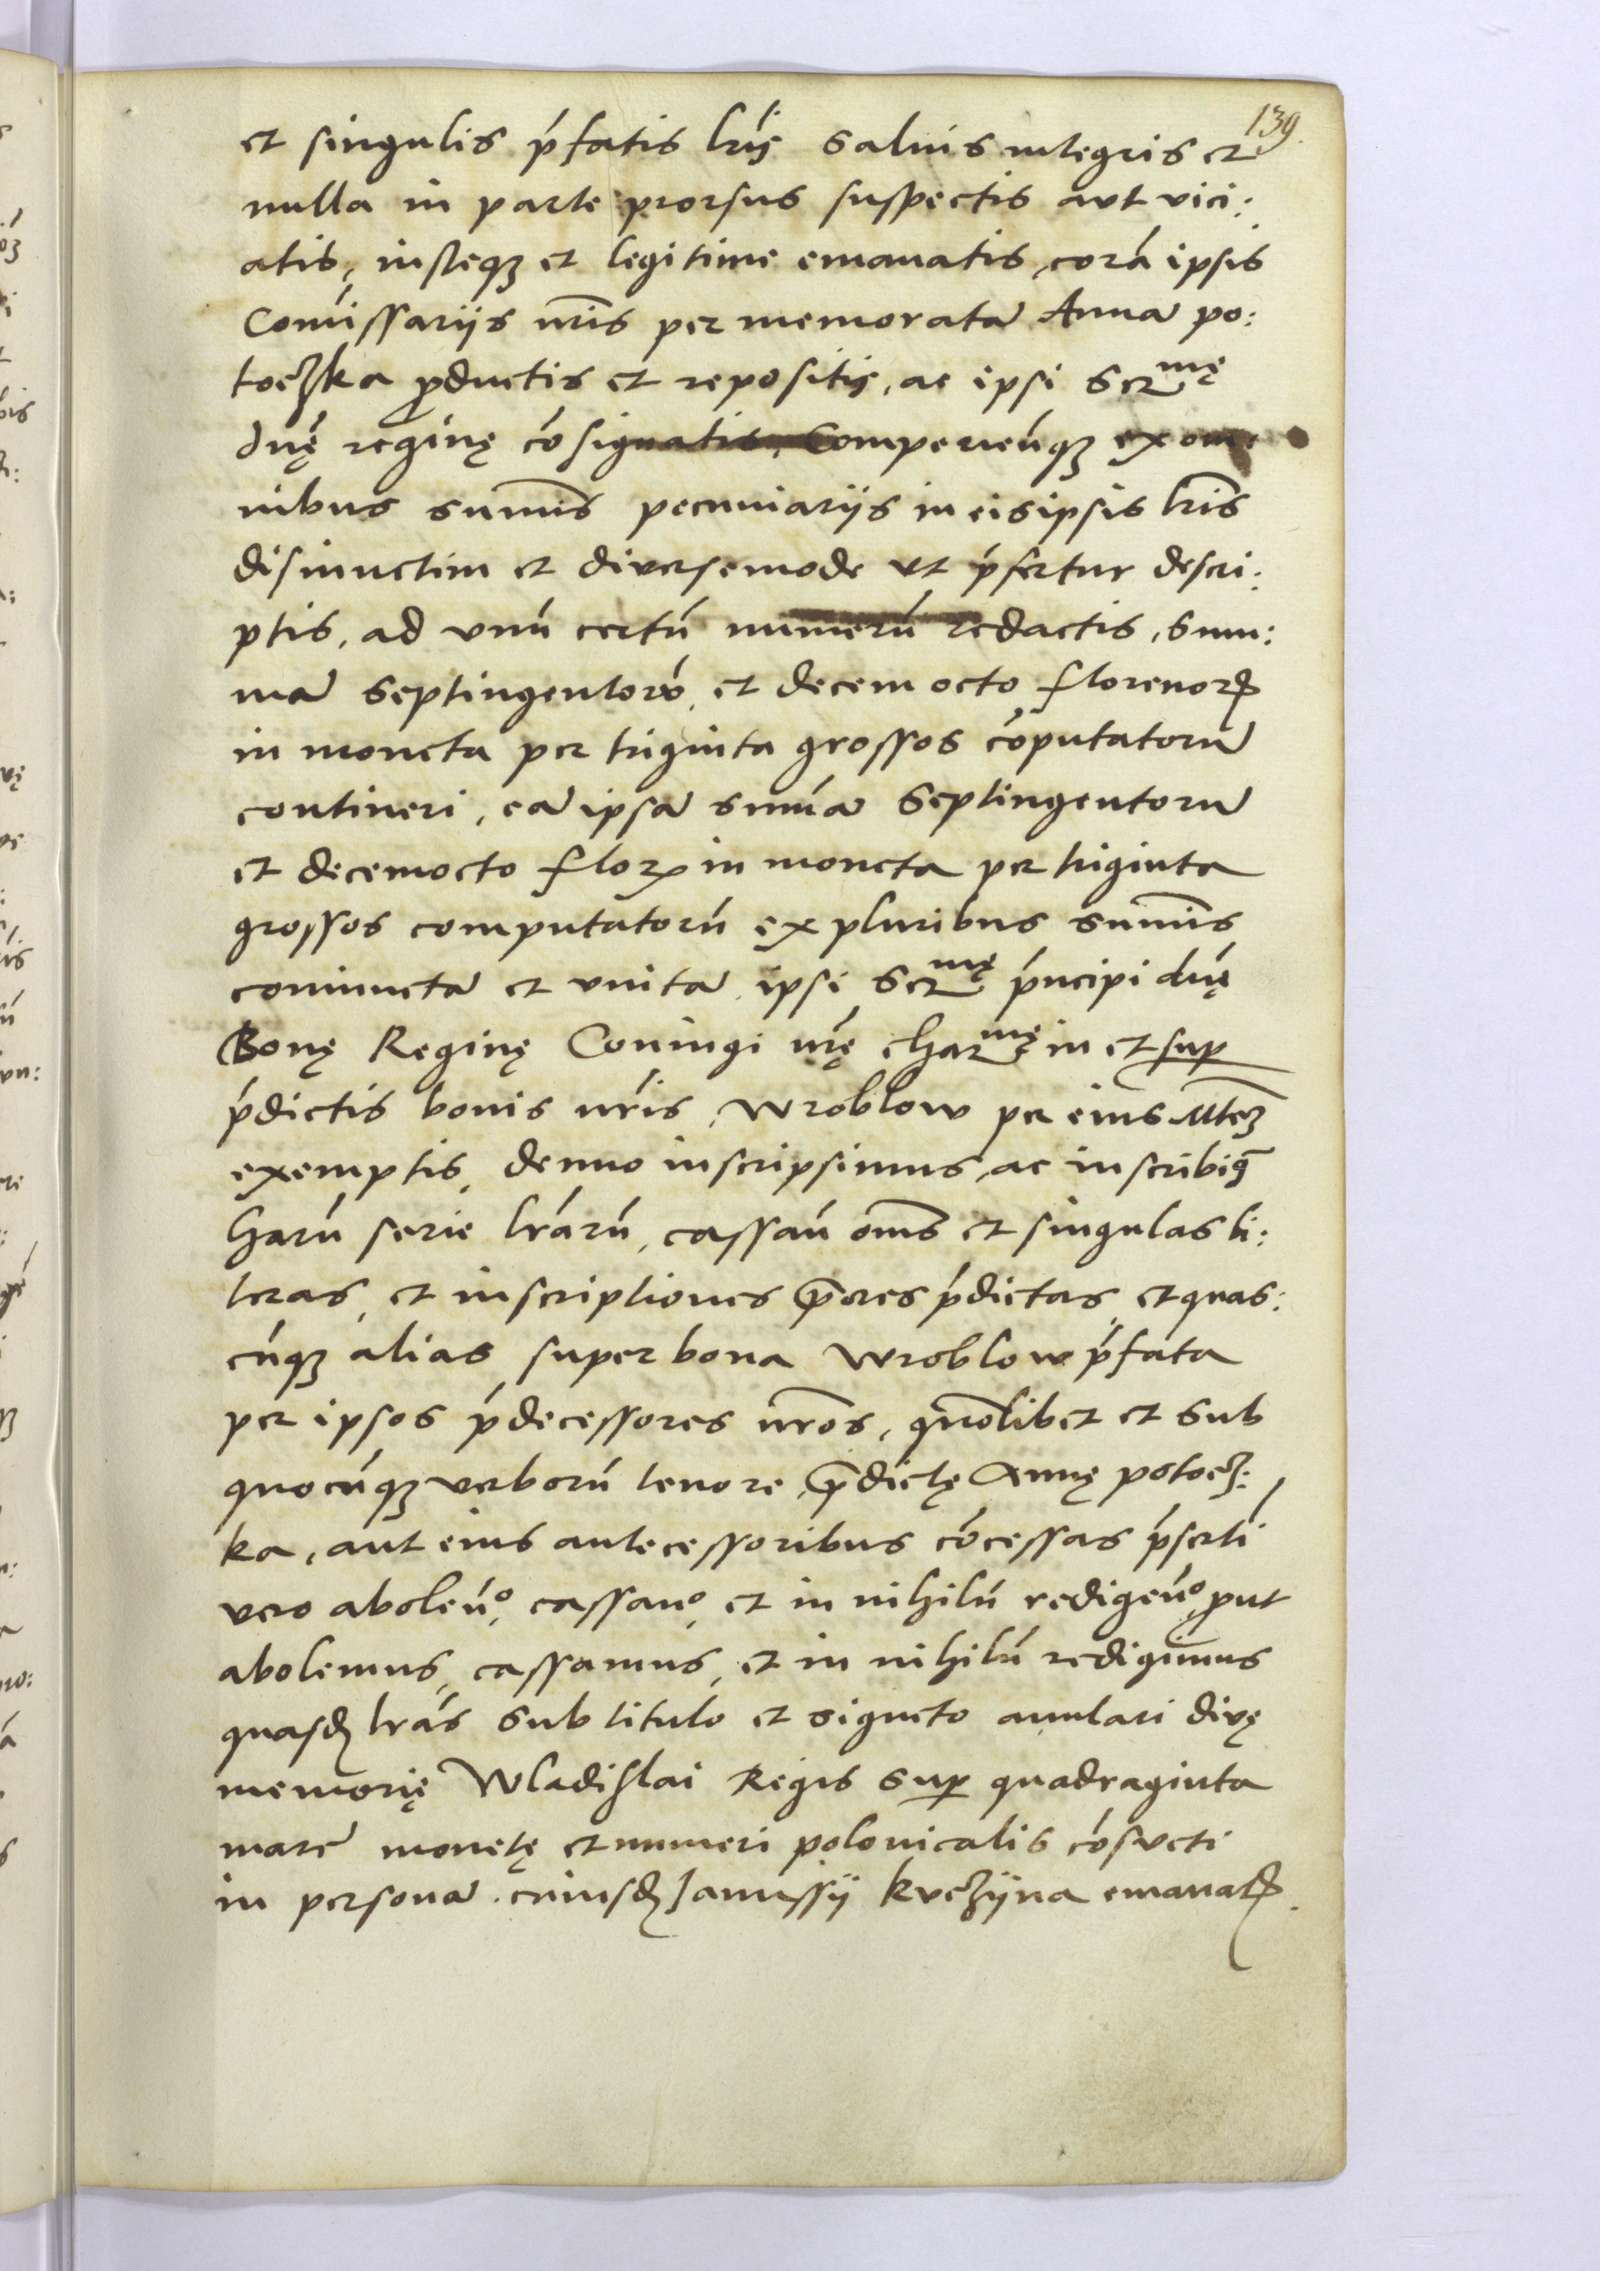 139.
et singulis ṕfatis lŕis salvis integris et
nulla in parte prorsus suspectis aut vici:
atis, insteq₃ et legitime emanatis, corā ipsis
Com̄issariis nr̄is per memoratā Annā po:
toczka ꝓductis et repositis, ac ipsi Serᵐᵉ̨
dnę̄ reginę cōsignatis, Comperieńq₃ ex om:
nibus sum̄is pecuniariis in eisipsis lrīs
disiunctim et diversemode ut ṕfertur descri:
ptis, ad unū certū numerū redactis, sum:
mā septingentorū et decem octo florenoꝝ
in moneta per triginta grossos cōputatorū
contineri, eā ipsā sum̄ā Septingentorū
et decemocto floꝝ in moneta per triginta
grossos computatorū ex pluribus sum̄is
coniunctā et unitā ipsi Serᵐᵉ̨ ṕncipi dnę̄
Bonę Reginę Coniugi nrę̄ charᵐᵉ̨ in et suꝑ
ṕdictis bonis nr̄is Wroblow per eius Mtē₃
exemptis, denuo inscripsimus, ac inscribiḡ
harū serie lrārū, cassań om̄s et singulas li:
teras et inscriptiones p̄ores ṕdictas, et quas:
cūq₃ alias super bona Wroblow ṕfata
per ipsos ṕdecessores nr̄os, quōlibet et sub
quocūq₃ verborū tenore p̄dictę Annę potocz:
ka, aut eius antecessoribus cōcessas ṕsertī
vero aboleńᵒ, cassańᵒ, et in nihilū redigeńᵒ, ꝓut
abolemus, cassamus, et in nihilū redigimus
quasd̄ lrās sub titulo et signeto anulari divę
memorię Wladislai Regis suꝑ quadraginta
marc̄ monetę et numeri polonicalis cōsueti
in personā cuiusd̄ Janussii Kuczyna emanatꝝ.